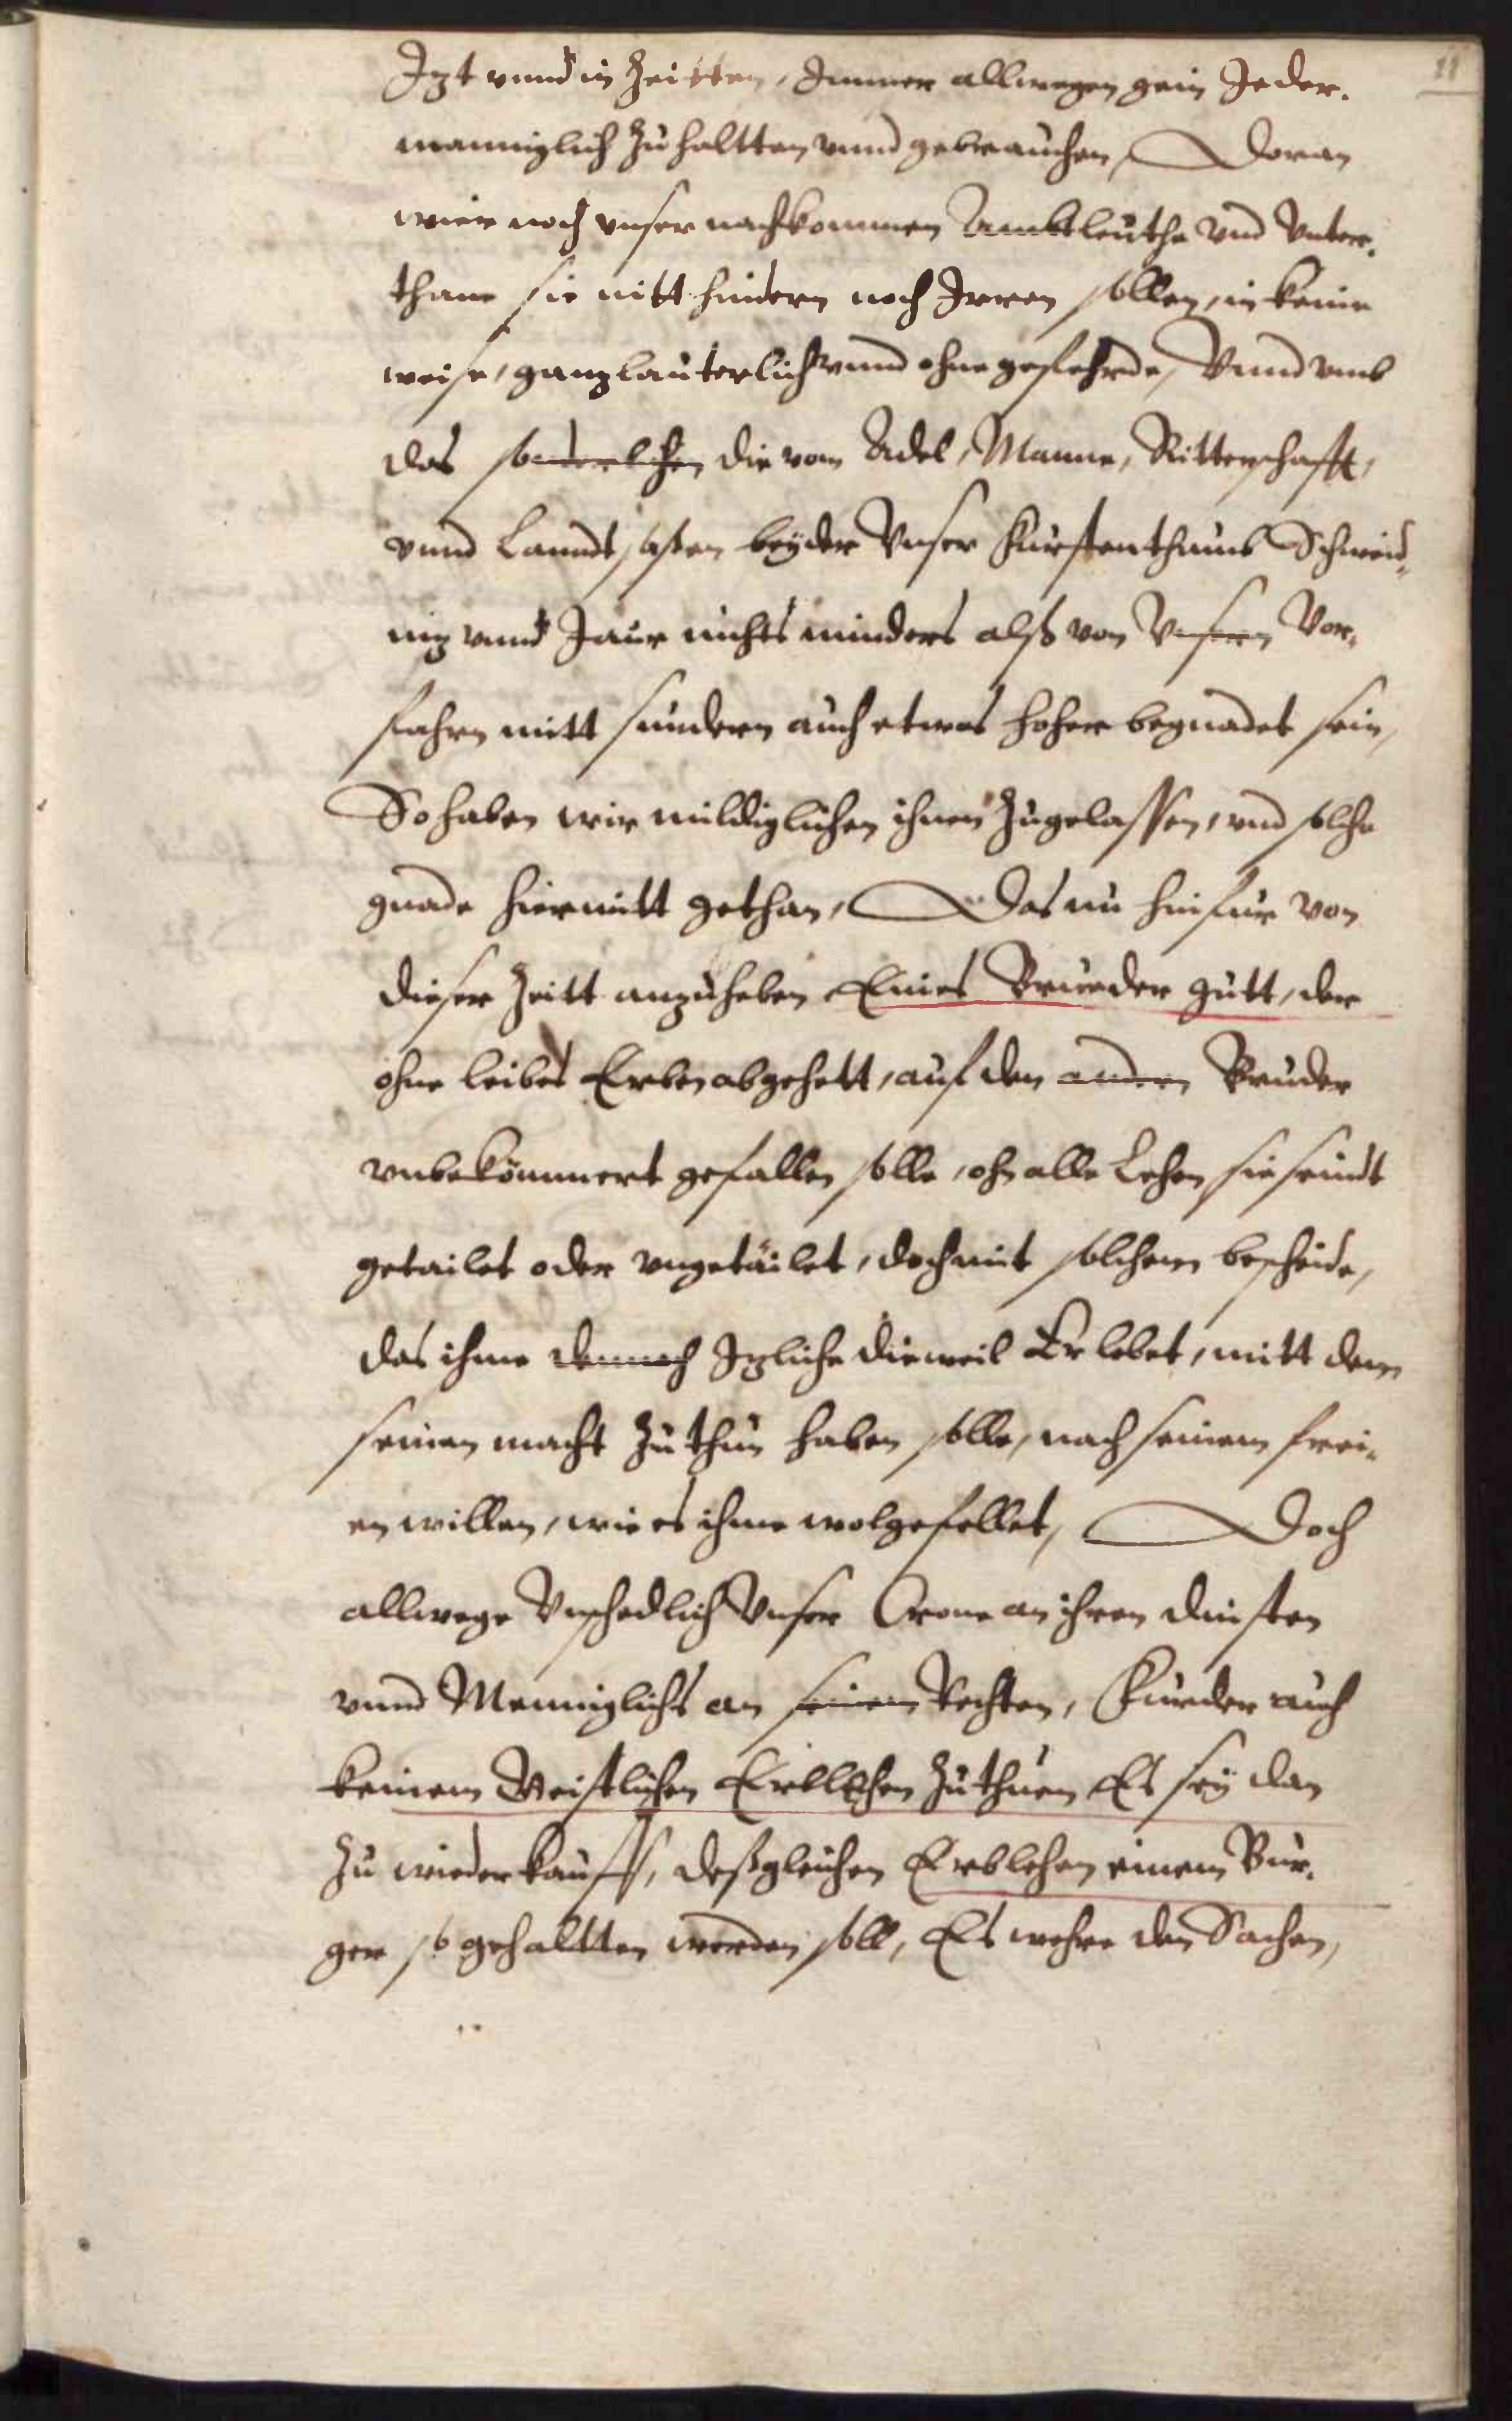 11
Izt vnnd in Zeitten, Immer allwegen gein Jeder.
manniglich zu haltten vnnd gebrauchen, Doran
wier noch vnser nachkommen Ambtleuthe vnd Vnter.
thane sie nitt hindern noch Irren sollen, in keine
weise, ganz lauterlich vnnd ohne gefehrde, Vnnd vmb
das sonderlichen die vom Adel, Manne, Ritterschafft,
vnnd Lanndtsaßen beyder Vnser Furstenthumb Schweid,,
niz vnnd Jaur nichts minders alß von Vnsern Vor,
fahrn mitt sundern auch etwas hoher begnadet sein,
So haben wir mildiglichen ihnen zugelassen, vnd solche
gnade hiermitt gethan, Das nu hinfur von
dieser Zeitt anzuheben Eines Bruder gutt, der
ohne leibes Erben abgehett, auf den andern Bruder
vnbekömmert gefallen solle, ohn alle Lehen sie seindt
getailet oder vngetailet, doch mit solchem bescheide,
das ihme dennoch Izliche dieweil Er lebet, mitt dem
seinen macht zu thun haben solle, nach seinem frei-
en willen, wie es ihme wolgefellet, Doch
allwege Vnschedlich Vnser Crone an ihren dinsten
vnnd Menniglichs an seinem Rechten, Furder auch
keinem Geistlichen Erblehen zu thuen Es sey dan
zu wiederkauff, deßgleichen Erblehen einem Bur.
ger so gehaltten werden soll, Es wehre den Sachen,